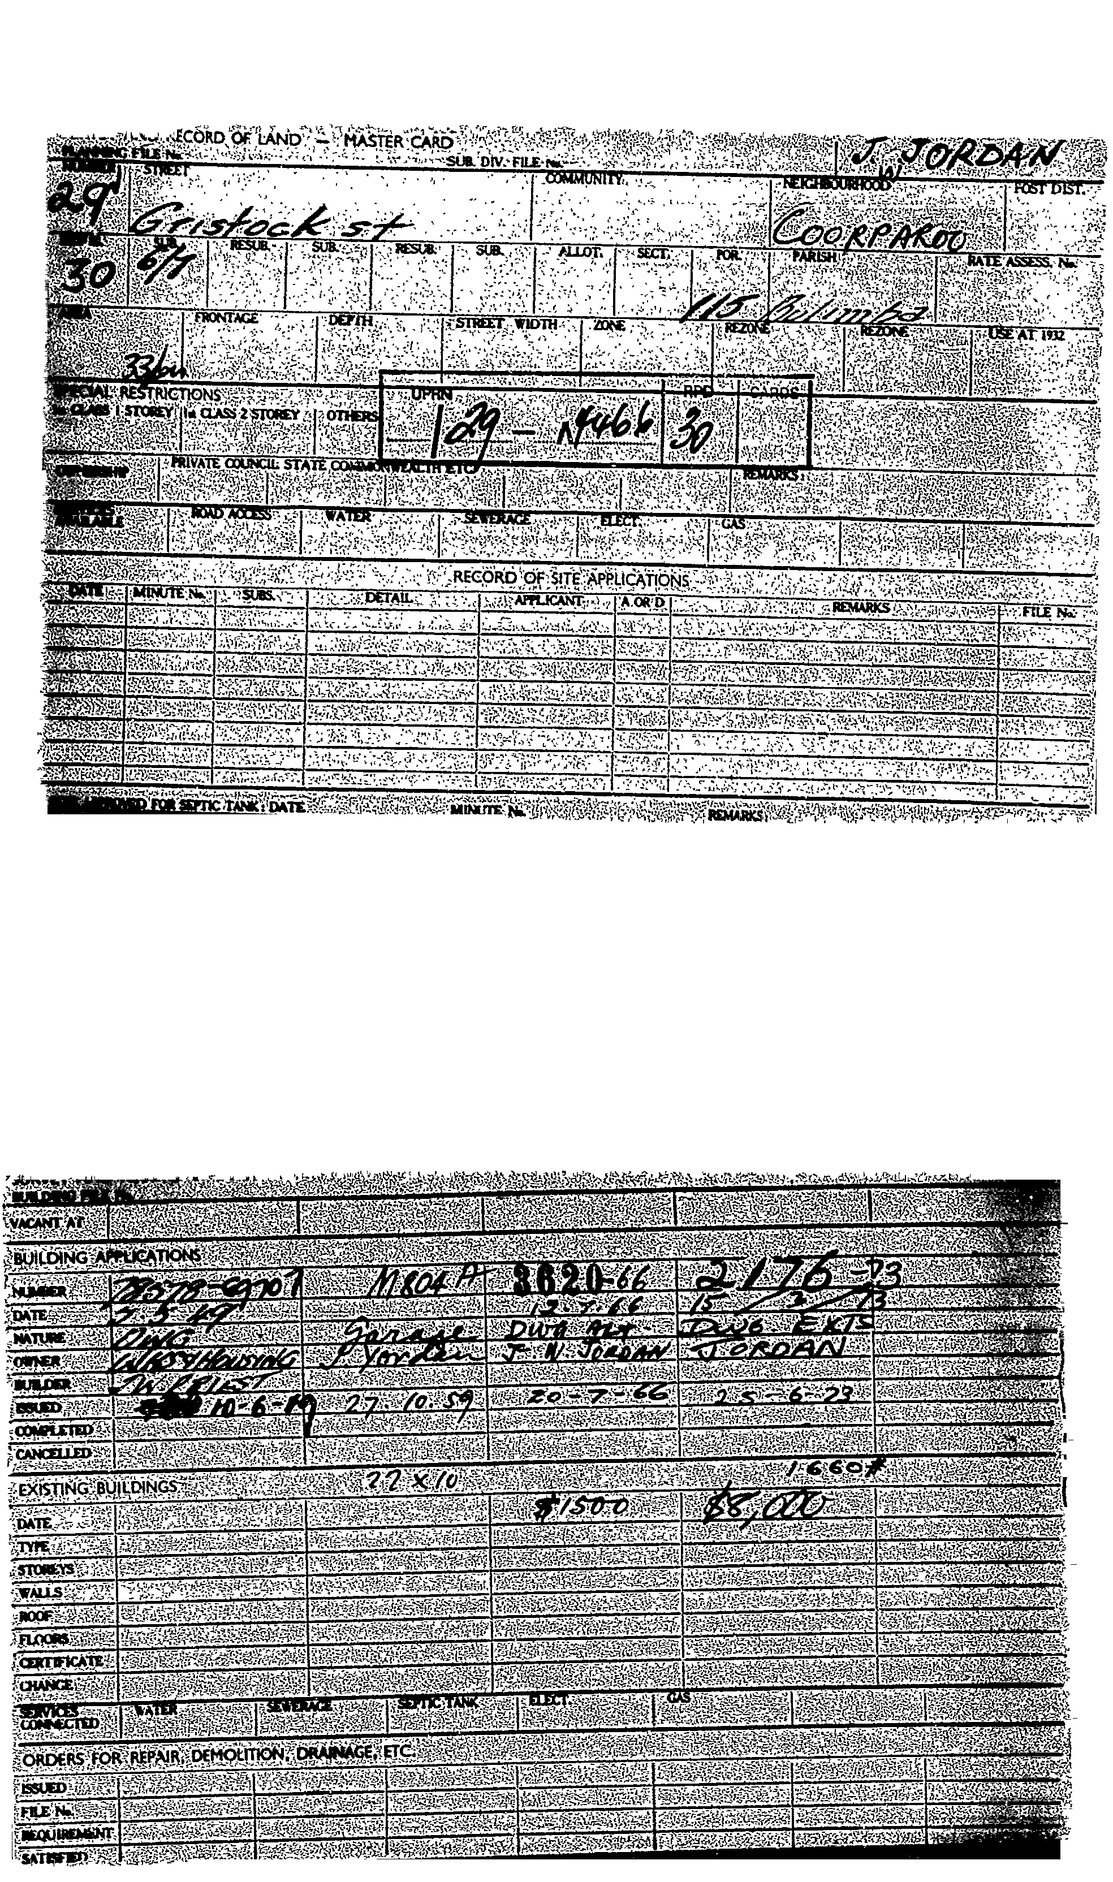 ECORD OF LAND — MASTER CARD
PLANNING FILE No. SUB. DIV. FILE No. J. W JORDAN
NUMBER STREET COMMUNITY NEIGHBOURHOOD POST DIST.
29 Gristock st COORPAROO
SUB. RESUB. SUB. RESUB. SUB. ALLOT. SECT. POR. PARISH RATE ASSESS. No.
30 6/7 115 Bulimba
AREA FRONTAGE DEPTH STREET WIDTH ZONE REZONE REZONE USE AT 1932
SPECIAL RESTRICTIONS UPRN RPD CARDS
1st CLASS 1 STOREY 1st CLASS 2 STOREY OTHERS 30
OWNERSHIP PRIVATE COUNCIL STATE COMMONWEALTH ETC. REMARKS
SERVICES AVAILABLE ROAD ACCESS WATER SEWERAGE ELECT. GAS
RECORD OF SITE APPLICATIONS
DATE MINUTE No. SUBS. DETAIL APPLICANT A OR D REMARKS FILE No.
APPROVED FOR SEPTIC TANK: DATE MINUTE No. REMARKS:
BUILDING FILE No.
VACANT AT
BUILDING APPLICATIONS
NUMBER M804A 3620-66 2176-73
DATE 7.5.49 12.7.66 15/3/73
NATURE DWG Garage DWG ALT DWG EXTS
OWNER J Jordan J. W. JORDAN JORDAN
BUILDER
ISSUED 10-6-49 27.10.59 20-7-66 25-6-73
COMPLETED
CANCELLED
EXISTING BUILDINGS 22 x 10 1660#
DATE $1500 $8,000
TYPE
STOREYS
WALLS
ROOF
FLOORS
CERTIFICATE
CHANGE
SERVICES CONNECTED WATER SEWERAGE SEPTIC TANK ELECT. GAS
ORDERS FOR REPAIR, DEMOLITION, DRAINAGE, ETC.
ISSUED
FILE No.
REQUIREMENT
SATISFIED